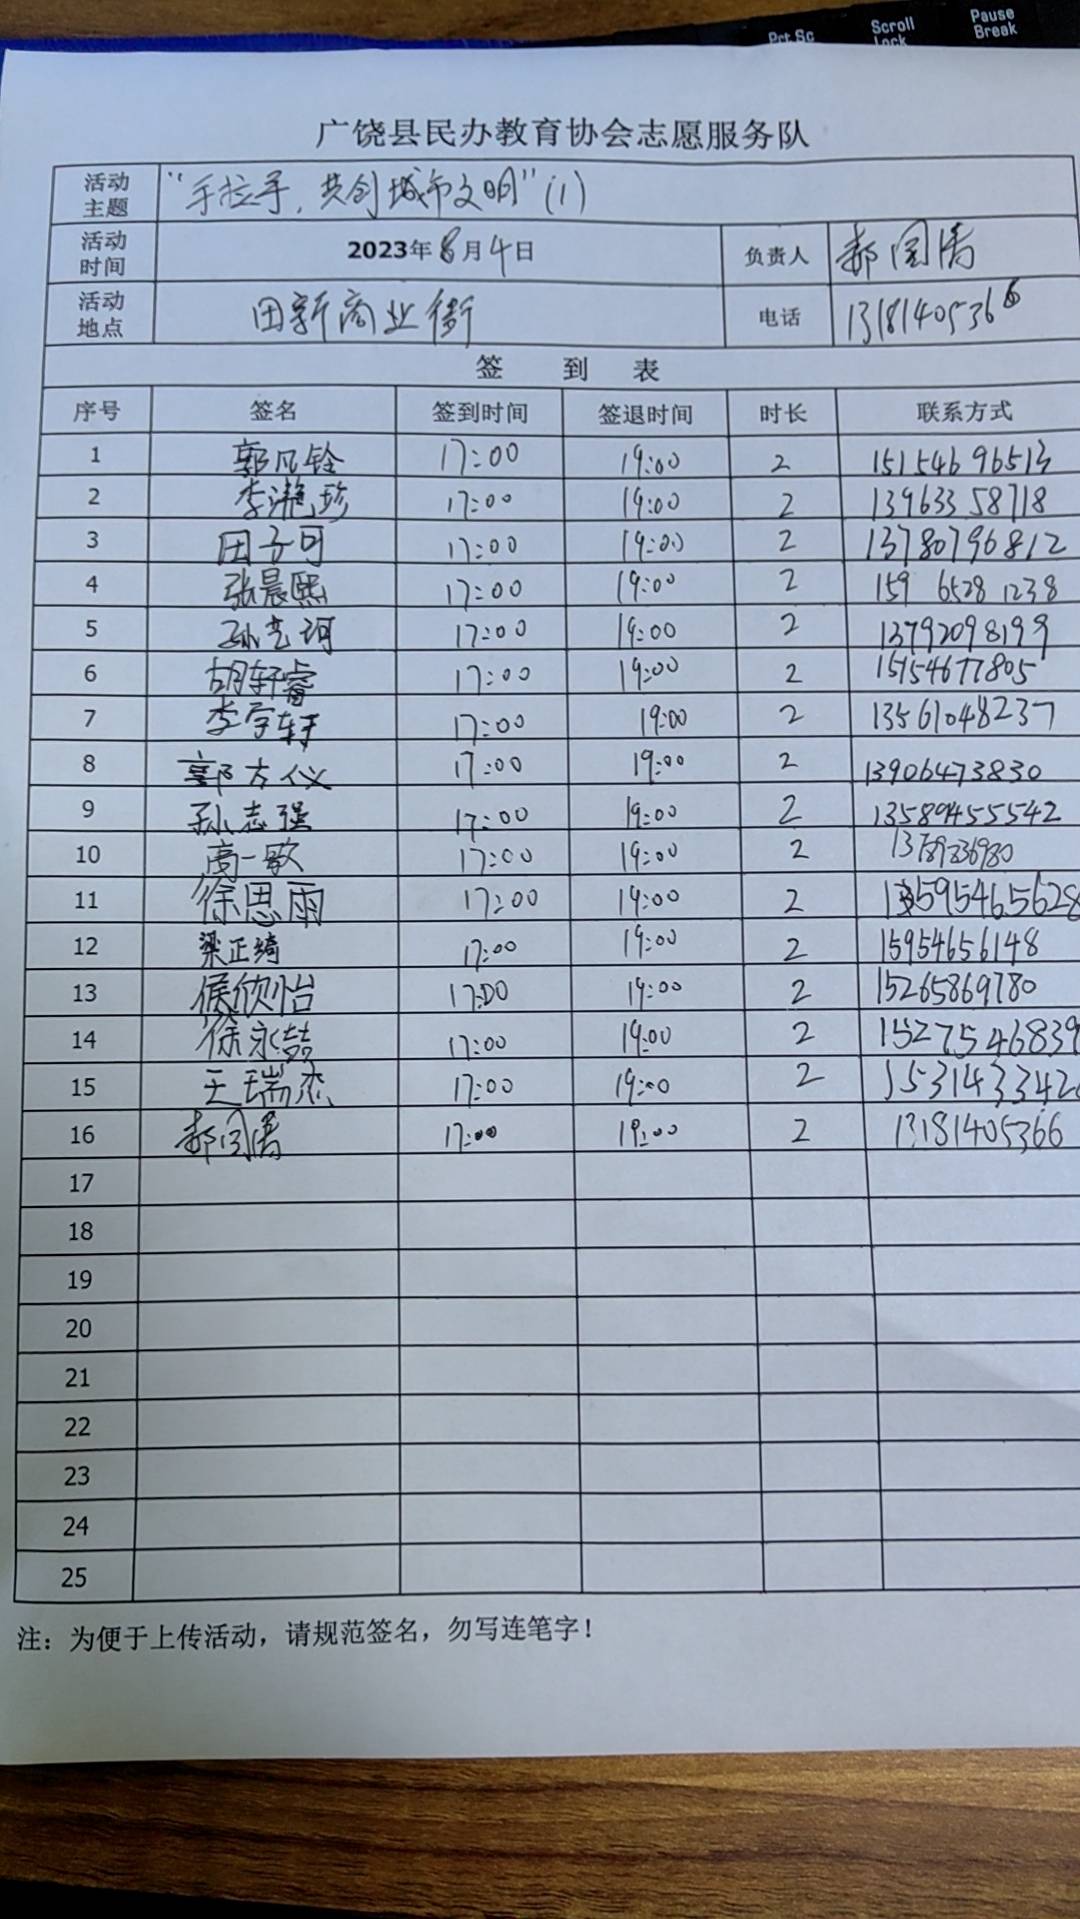 Prt Sc
Scroll Lock
Pause Break
广饶县民办教育协会志愿服务队
活动主题 “手拉手，共创城市文明”(1)
活动时间 2023年8月4日 负责人 郝国清
活动地点 田新商业街 电话 13181405366
签 到 表
序号 签名 签到时间 签退时间 时长 联系方式
1 郭凡铨 17:00 19:00 2 15154696513
2 李滟珍 17:00 19:00 2 13963358718
3 田子可 17:00 19:00 2 13780796812
4 张晨熙 17:00 19:00 2 159 6528 1238
5 孙艺珂 17:00 19:00 2 13792098199
6 胡轩睿 17:00 19:00 2 15154677805
7 李宇轩 17:00 19:00 2 13561048237
8 郭方仪 17:00 19:00 2 13906473830
9 孙志强 17:00 19:00 2 13589455542
10 高一歌 17:00 19:00 2
11 徐思雨 17:00 19:00 2
12 梁正绮 17:00 19:00 2 15954656148
13 侯欣怡 17:00 19:00 2 15265869780
14 徐永喆 17:00 19:00 2 1527546839
15 王瑞杰 17:00 19:00 2 1531433426
16 郝国清 17:00 19:00 2 13181405366
17
18
19
20
21
22
23
24
25
注：为便于上传活动，请规范签名，勿写连笔字！